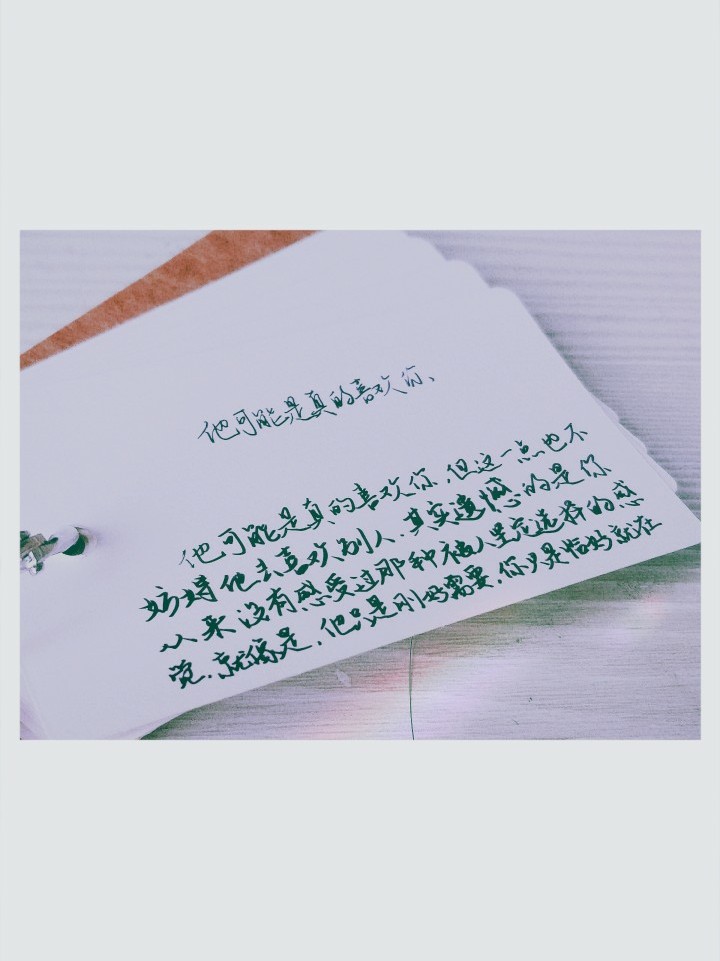 他可能是真的喜欢你、
他可能是真的喜欢你,但这一点也不
妨碍他去喜欢别人,其实遗憾的是你
从来没有感受过那种被人坚定选择的感
觉,就像是,他只是刚好需要,你只是恰好就在